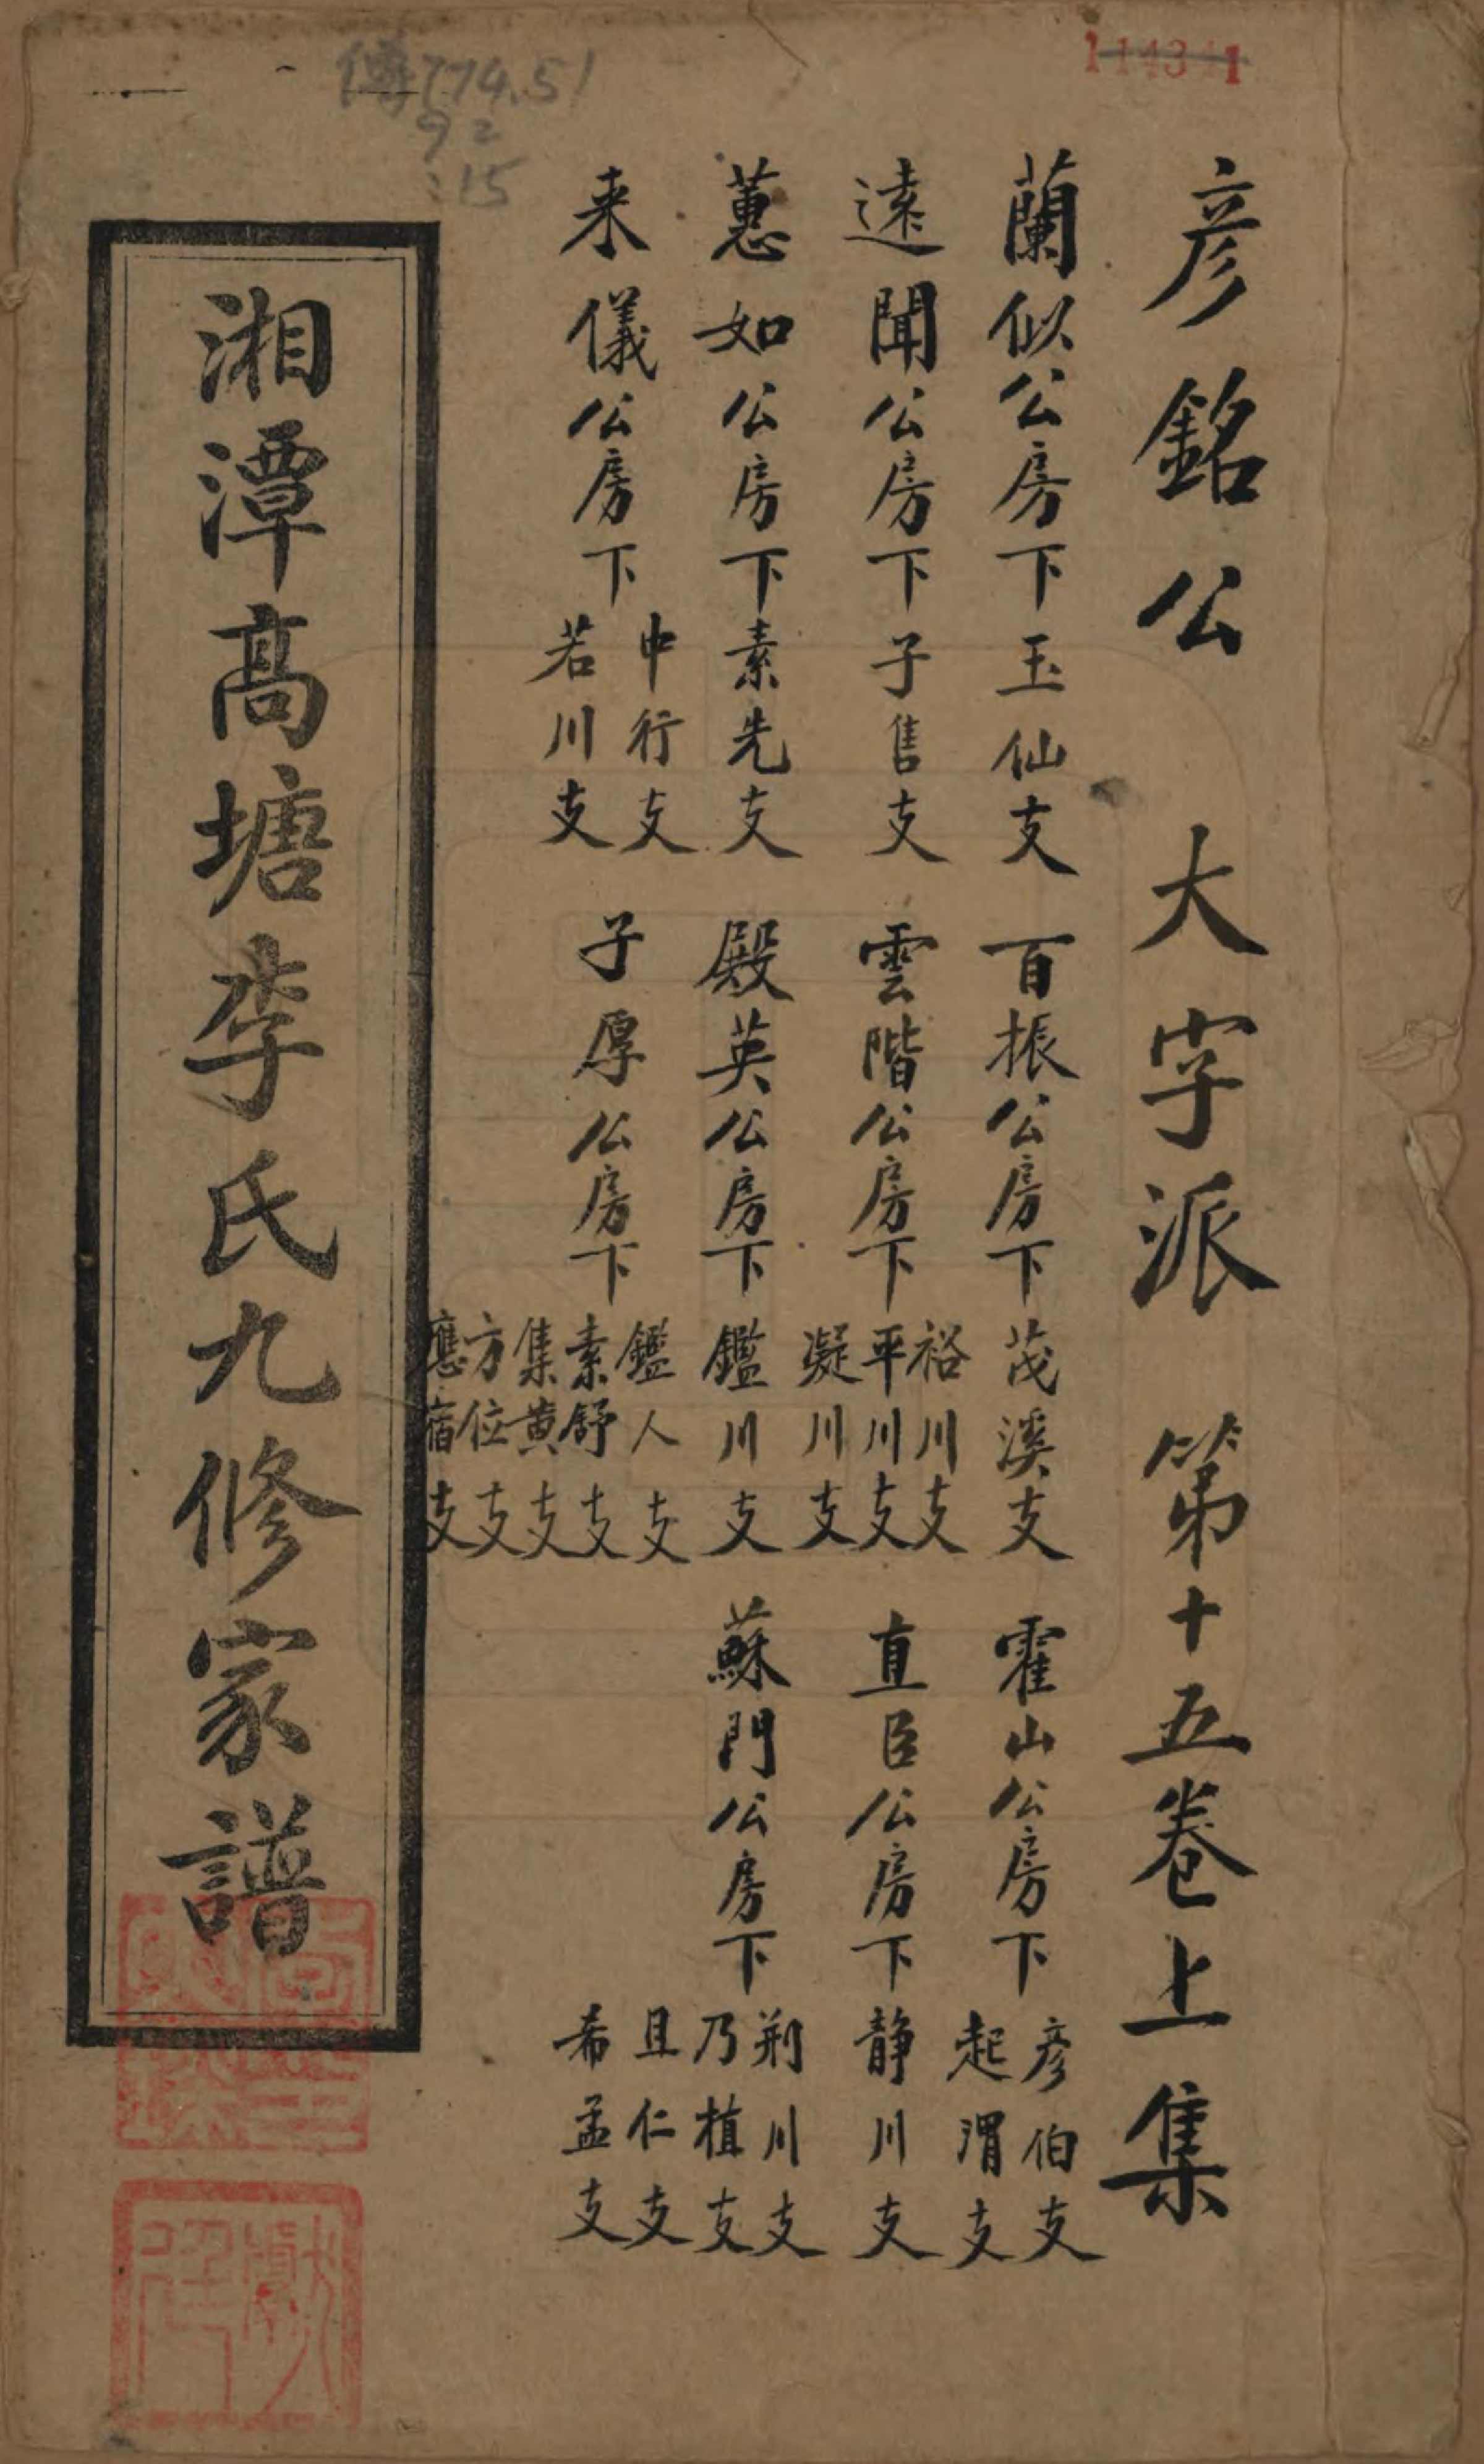 彦銘公 大字派 第十五卷上集
蘭似公房下玉仙支 百振公房下茂溪支 霍山公房下彦伯支 起渭支
遠聞公房下子售支 雲階公房下裕川支 平川支 凝川支 直臣公房下靜川支
蕙如公房下素先支 殿英公房下鑑川支 蘇門公房下荆川支 乃植支 且仁支 希孟支
来儀公房下中行支 若川支 子厚公房下鑑人支 素舒支 集黄支 方位支 應宿支
湘潭高塘李氏九修家譜
114341
傳774.51
92
:15